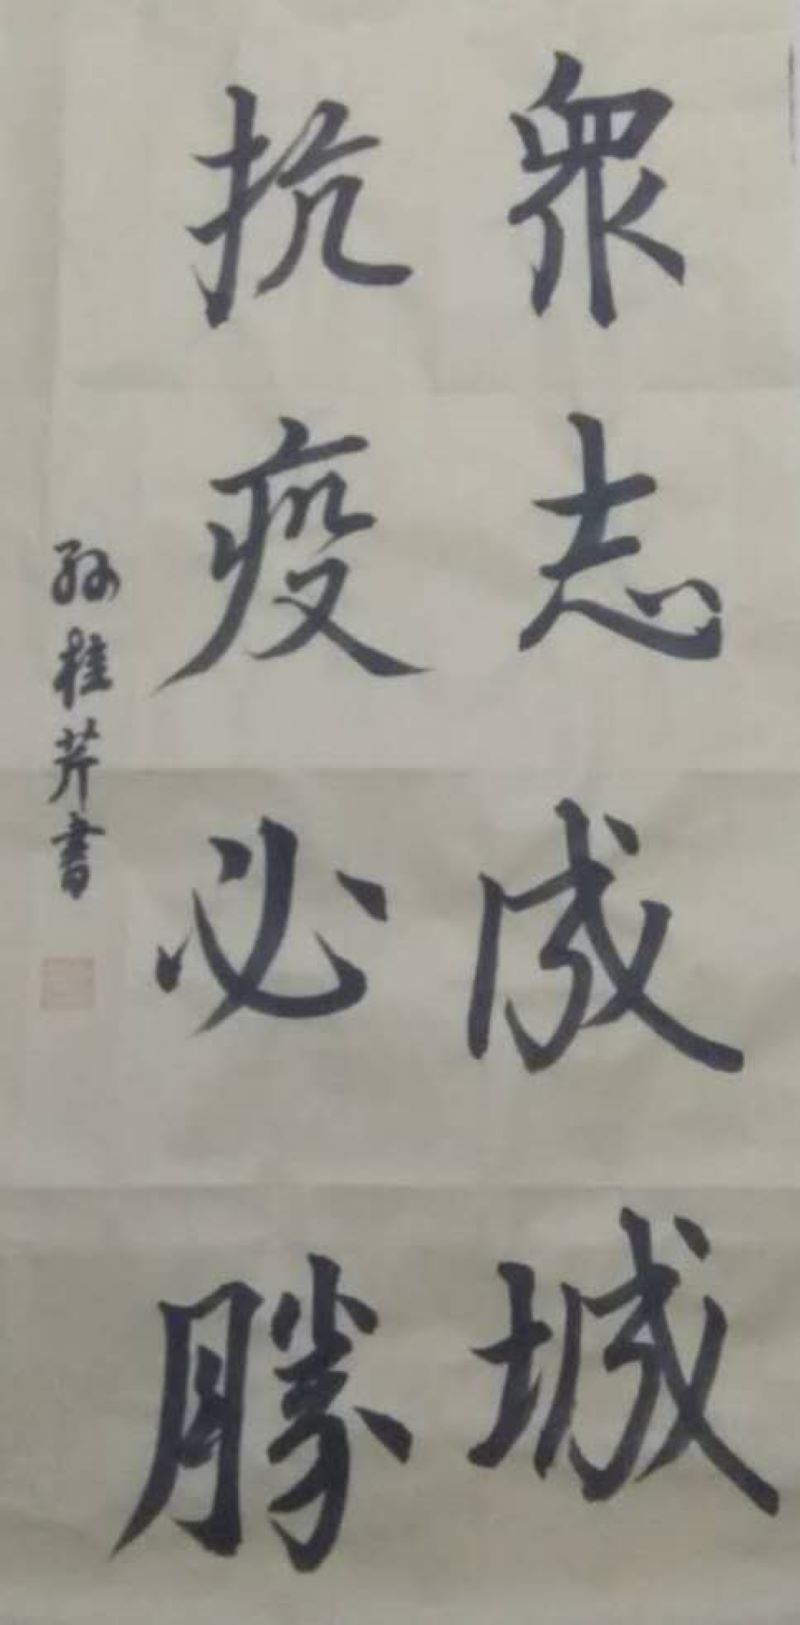 眾志成城
抗疫必勝
孙桂芹書